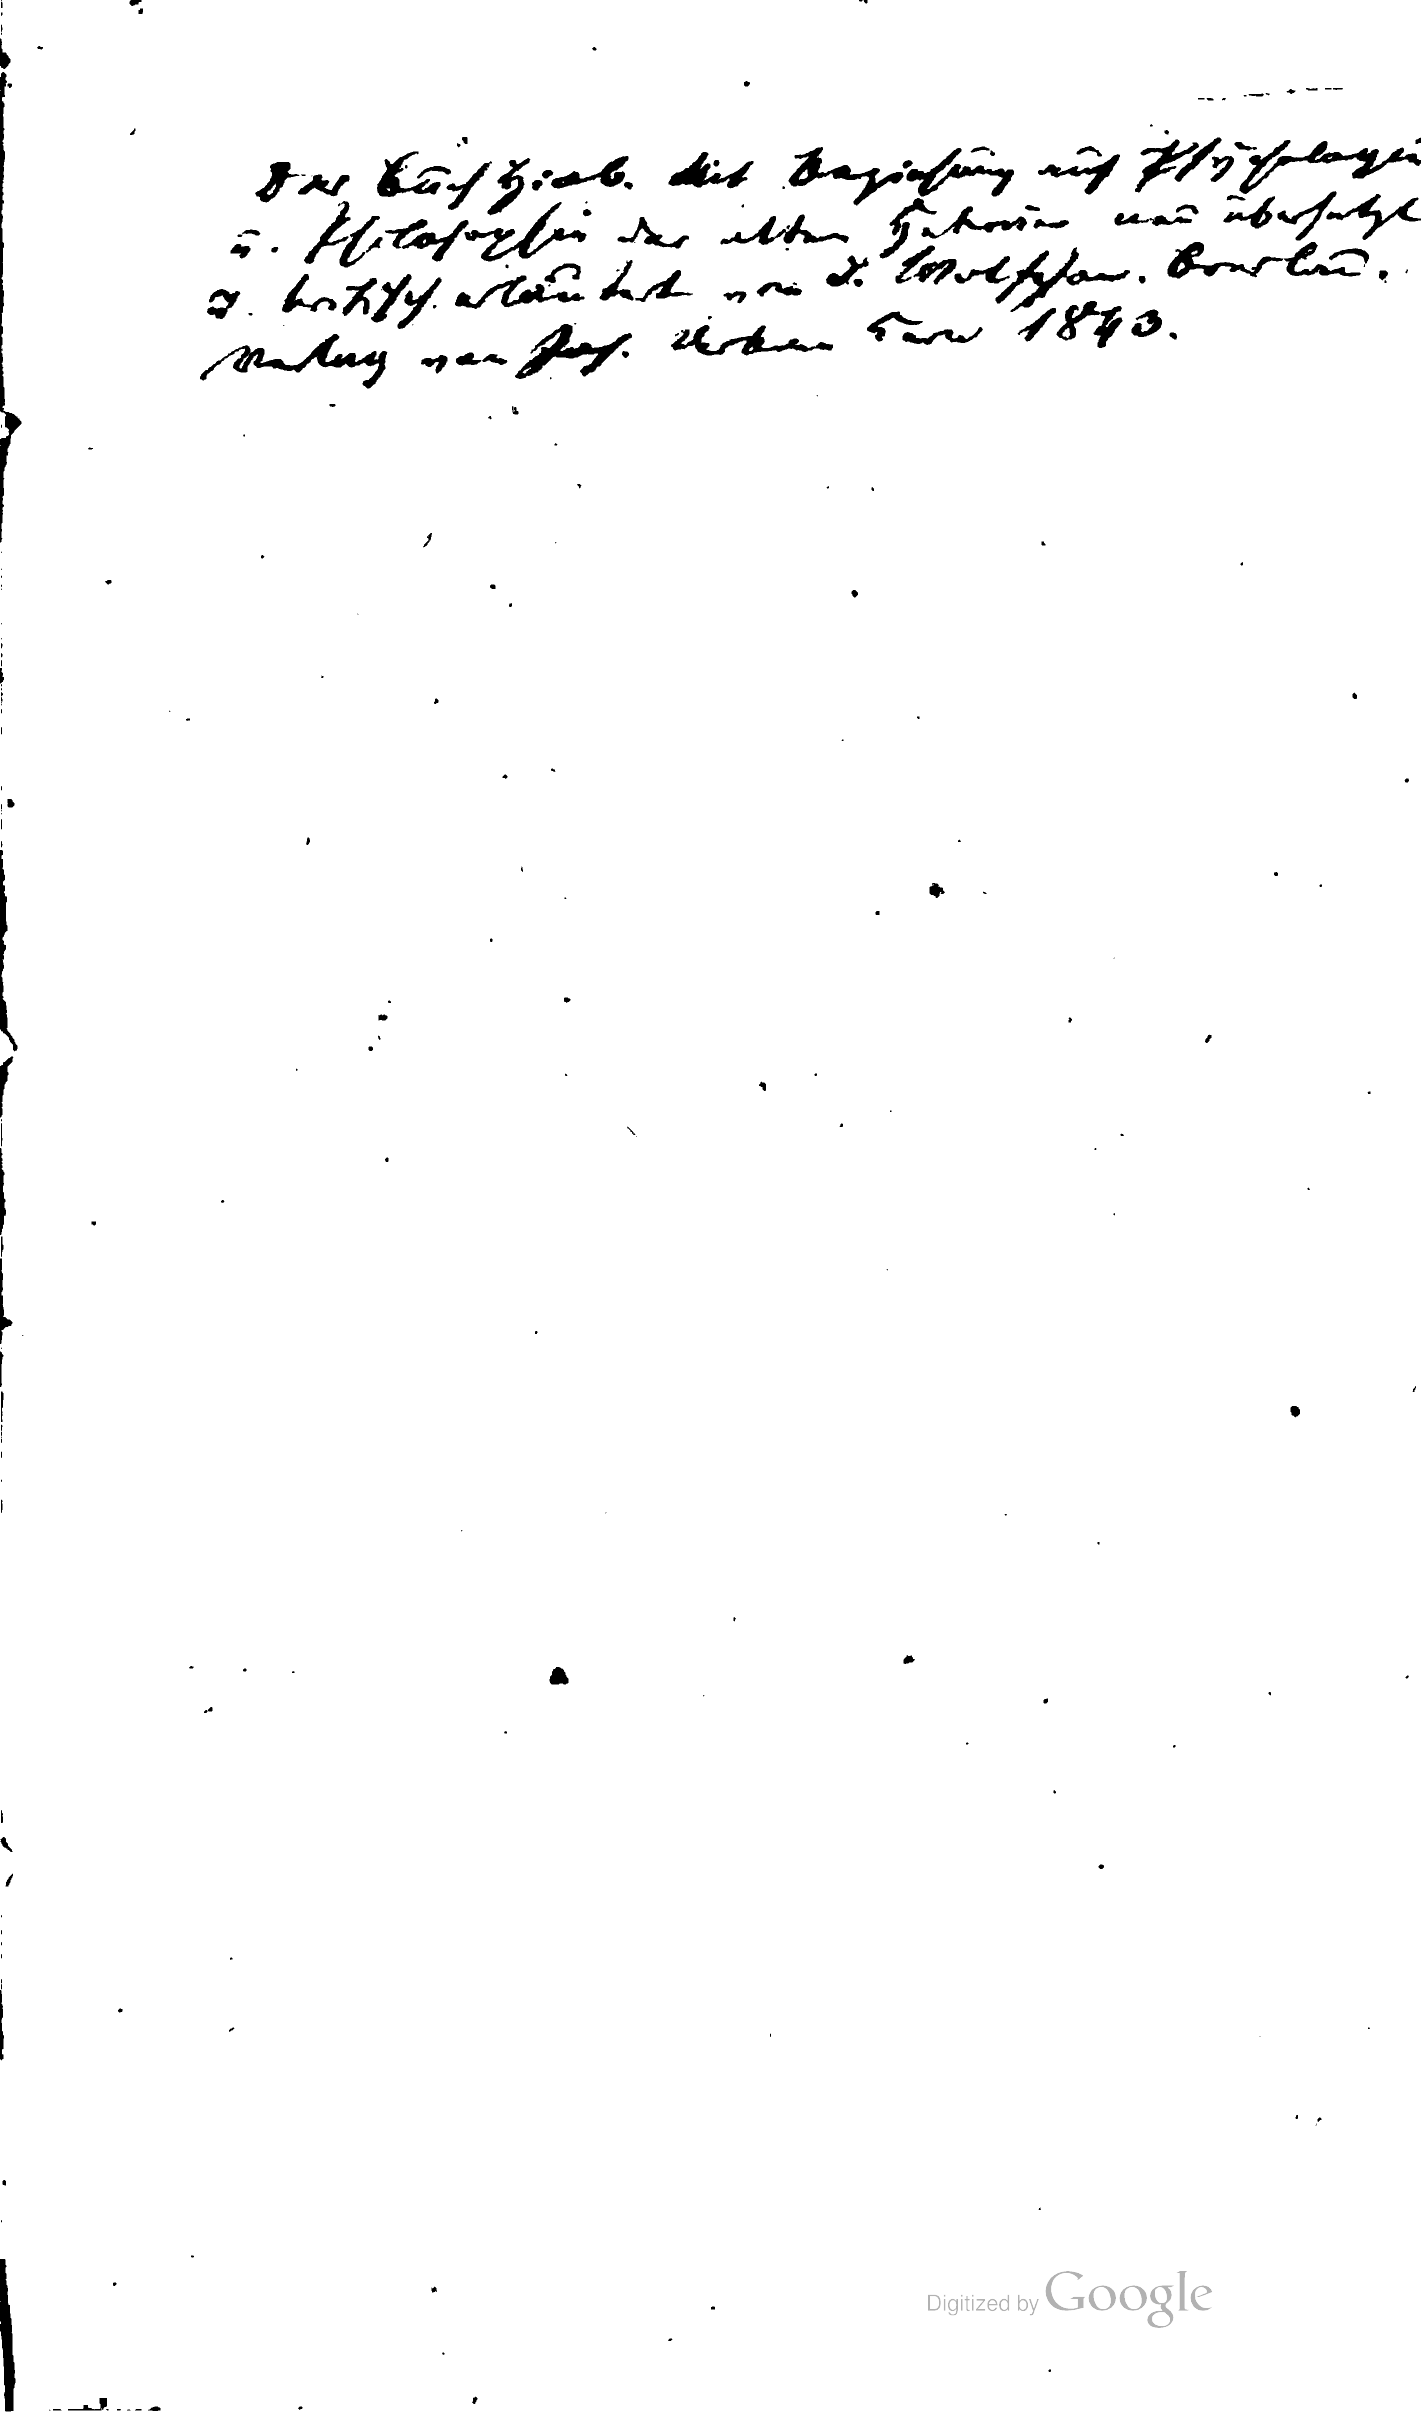 Das Buch Hiob. Mit Beziehung auf Psychologie
u. Philosophie der alten Hebräer neu übersetzt
u. kritisch erläutert von J. Wolfson. Breslau.
Verlag von Joh. Urban Kern 1843.
Digitized by Google